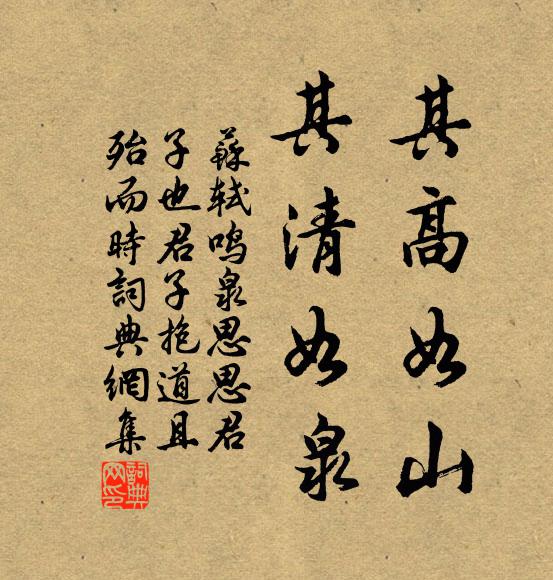 其高如山
其清如泉
蘇軾鳴泉思思君
子也君子抱道且
殆而時詞典網集
詞典网印